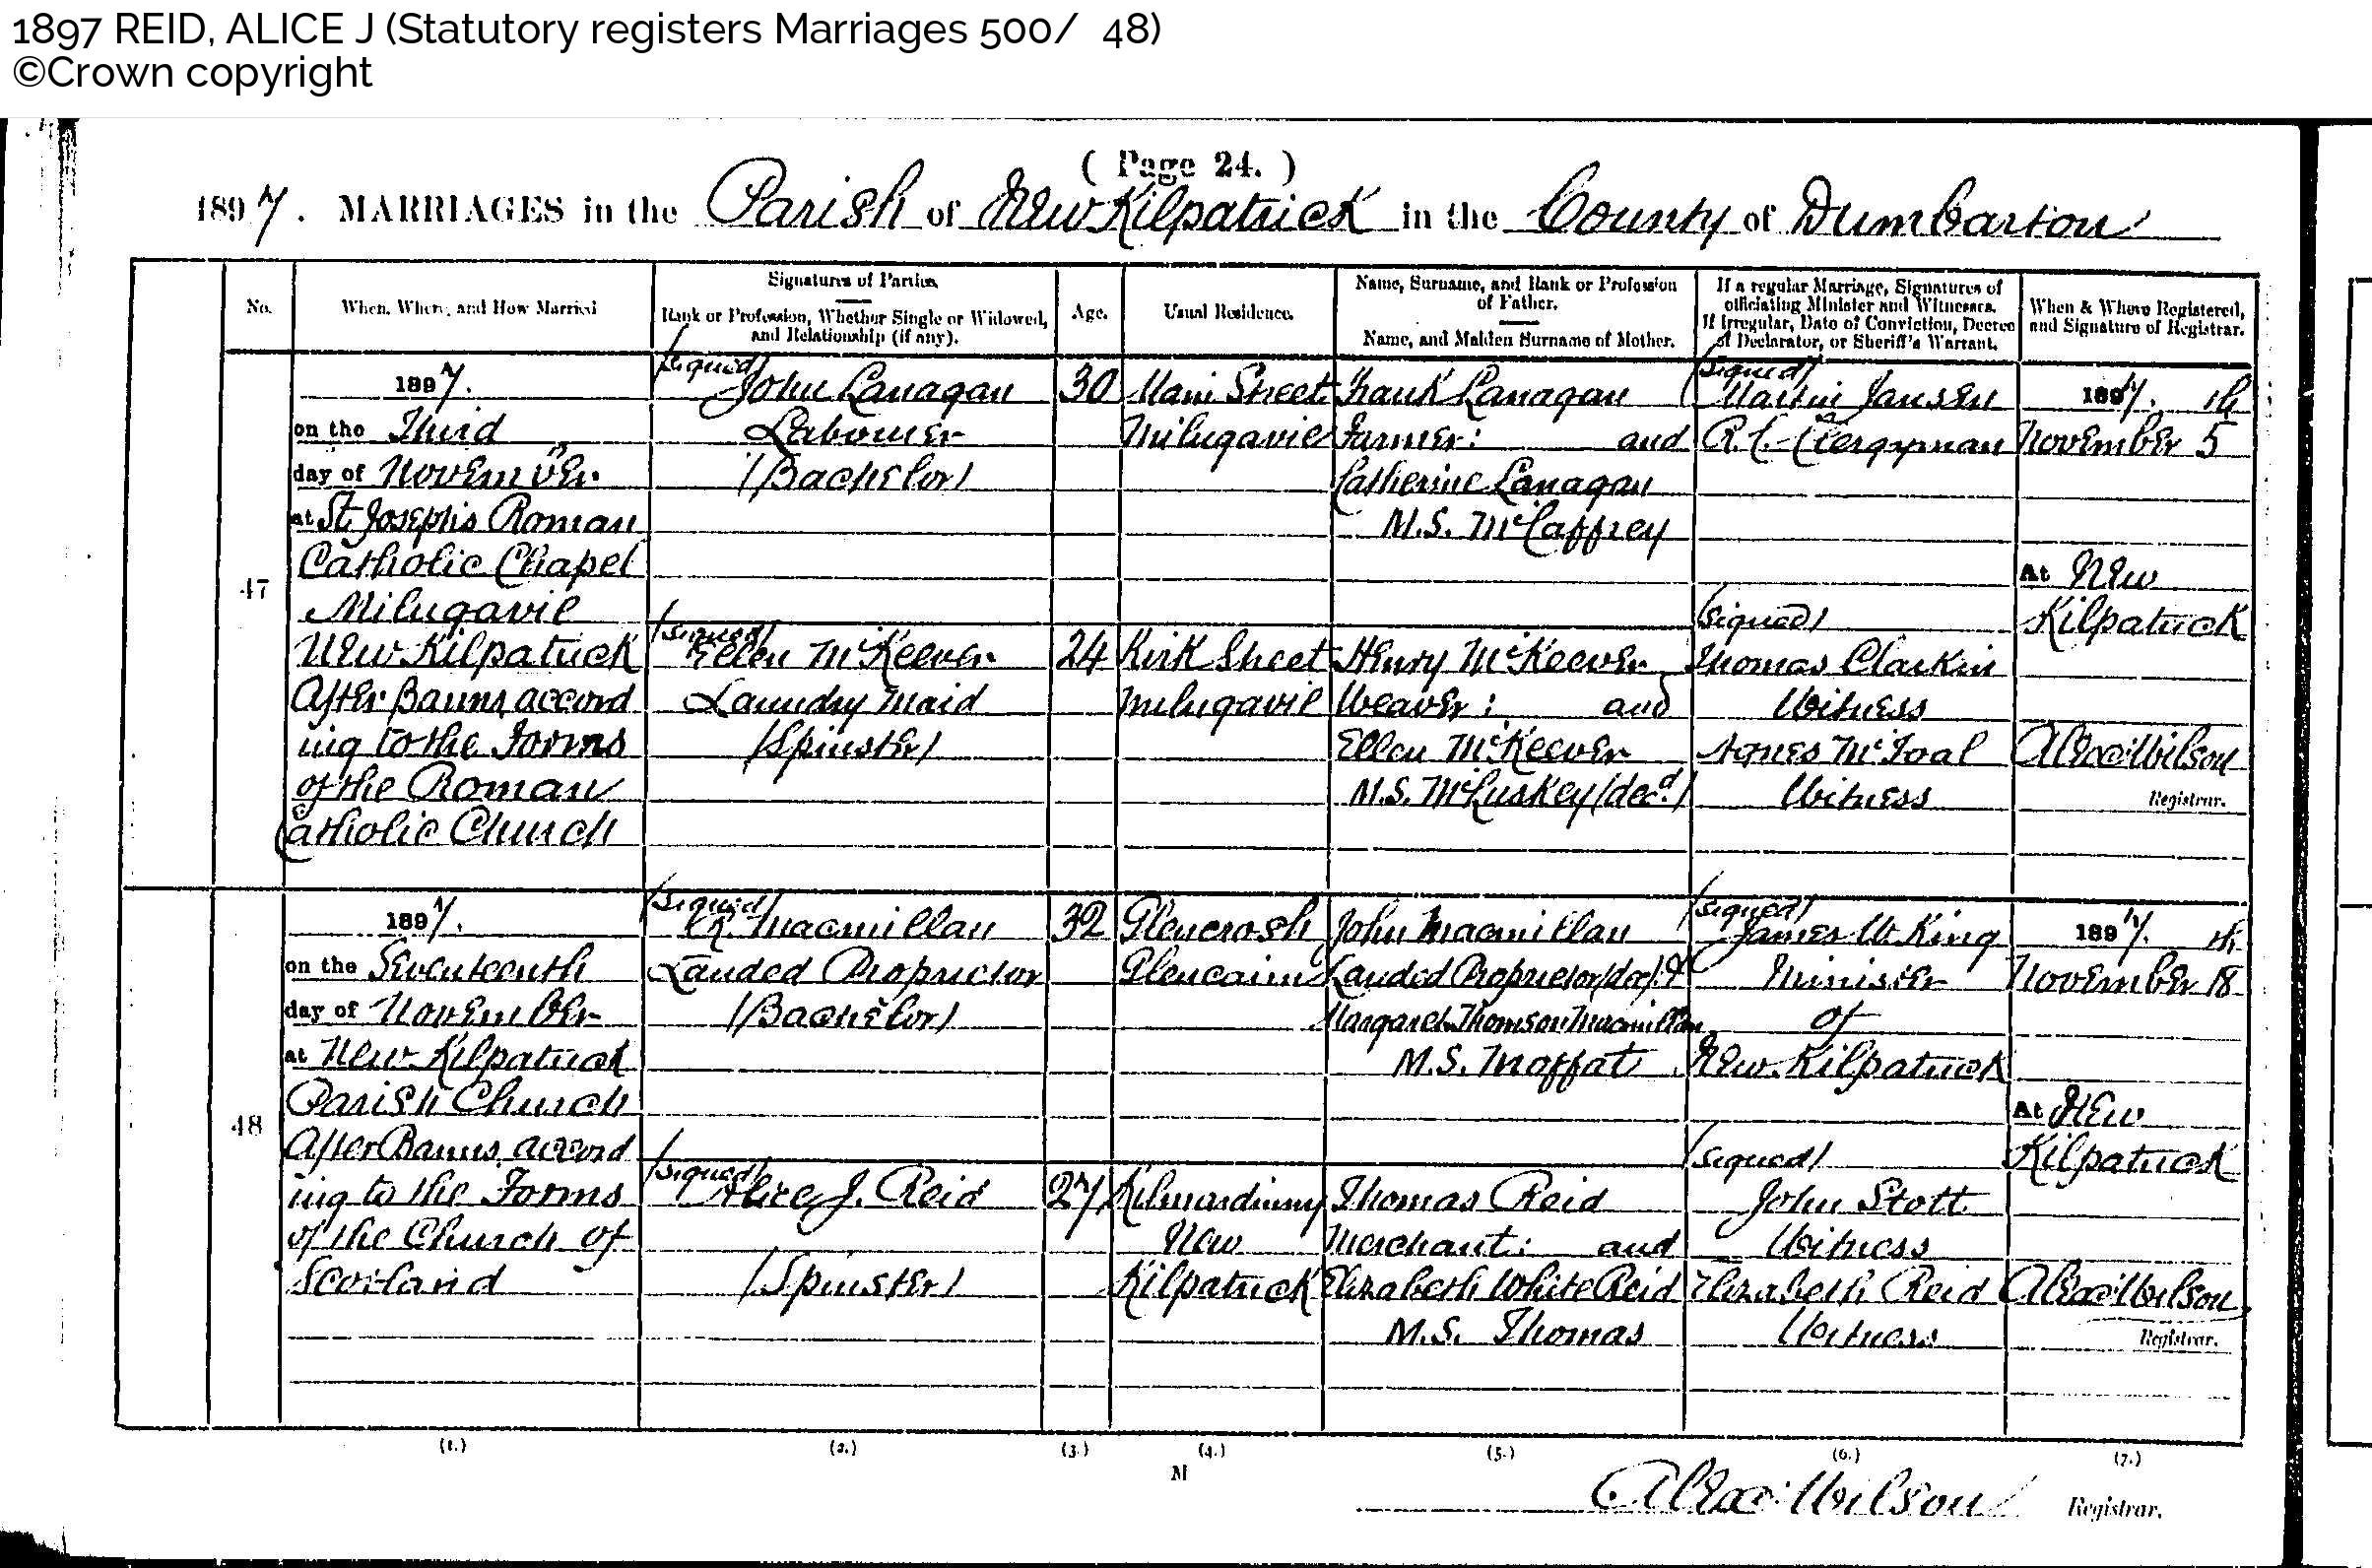 1897 REID, ALICE J (Statutory registers Marriages 500/ 48)
©Crown copyright
( Page 24. )
1897. MARRIAGES in the Parish of New Kilpatrick in the County of Dumbarton
No.
When, Where, and How Married
Signatures of Parties.
Rank or Profession, Whether Single or Widowed,
and Relationship (if any).
Age.
Usual Residence.
Name, Surname, and Rank or Profession
of Father.
Name, and Maiden Surname of Mother.
If a regular Marriage, Signatures of
officiating Minister and Witnesses.
If Irregular, Date of Conviction, Decree
of Declarator, or Sheriff's Warrant.
When & Where Registered,
and Signature of Registrar.
47
1897.
on the Third
day of November
at St. Joseph's Roman
Catholic Chapel
Milngavie
New Kilpatrick
After Banns, accord
ing to the Forms
of the Roman
Catholic Church
(signed)
John Lanagan
Labourer
(Bachelor)
(signed)
Ellen McKeever
Laundry Maid
(Spinster)
30
24
Main Street
Milngavie
Kirk Street
Milngavie
Frank Lanagan
Farmer: and
Catherine Lanagan
M.S. McCaffrey
Henry McKeever
Weaver: and
Ellen McKeever
M.S. McLuskey (decd.)
(signed)
Martin Jansen
R.C. Clergyman
(signed)
Thomas Clarkin
Witness
Agnes McToal
Witness
1897.
November 5th
At New
Kilpatrick
Alexr Wilson
Registrar.
48
1897.
on the Seventeenth
day of November
at New Kilpatrick
Parish Church
After Banns, accord
ing to the Forms
of the Church of
Scotland
(signed)
R. Macmillan
Landed Proprietor
(Bachelor)
(signed)
Alice J. Reid
(Spinster)
32
27
Glencrosh
Glencairn
Kilmardinny
New
Kilpatrick
John Macmillan
Landed Proprietor (dec) &
Margaret Thomson Macmillan
M.S. Moffat
Thomas Reid
Merchant: and
Elizabeth White Reid
M.S. Thomas
(signed)
James W. King
Minister
of
New Kilpatrick
(signed)
John Stott
Witness
Elizabeth Reid
Witness
1897.
November 18th
At New
Kilpatrick
Alexr Wilson
Registrar.
(1.) (2.) (3.) (4.) (5.) (6.) (7.)
M
Alexr Wilson Registrar.